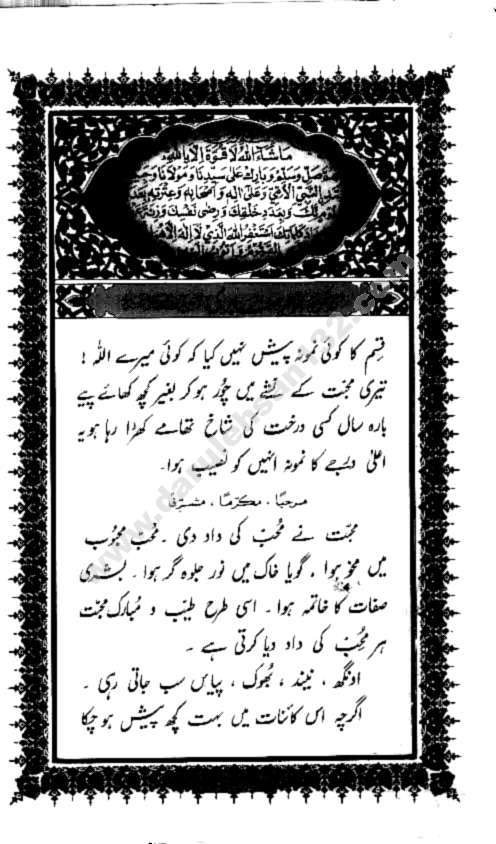 ماشاء الله لا قوة الا بالله
صل وسلم وبارك على سيدنا ومولانا
النبي الامي وعلى اله واصحابه وعترته
وبعدد خلقك ورضى نفسك وزنة
استغفر الله الذي لا اله الا
قسم کا کوئی نمونہ پیش نہیں کیا کہ کوئی میرے اللہ !
تیری محبّت کے نشے میں چُور ہو کر بغیر کچھ کھائے پیے
بارہ سال کسی درخت کی شاخ تھامے کھڑا رہا ہو یہ
اعلیٰ درجے کا نمونہ انہیں کو نصیب ہوا۔
مرحبًا ، مکرمًا ، مشرفًا
محبّت نے مُحِبّ کی داد دی ۔ مُحِبّ محبُوب
میں محو ہوا ، گویا خاک میں نور جلوہ گر ہوا ۔ بشری
صفات کا خاتمہ ہوا ۔ اسی طرح طیّب و مُبارک محبّت
ہر مُحِبّ کی داد دیا کرتی ہے ۔
اونگھ ، نیند ، بُھوک ، پیاس سب جاتی رہی ۔
اگرچہ اس کائنات میں بہت کچھ پیش ہو چکا
www.darulehsan132.com